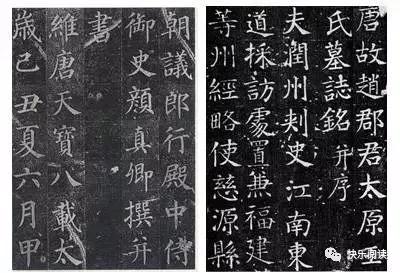 唐故趙郡君太原王
氏墓誌銘并序
夫潤州刺史江南東
道採訪處置兼福建
等州經略使慈源縣
朝議郎行殿中侍
御史顏真卿撰并
書
維唐天寶八載太
歲己丑夏六月甲
快乐阅读